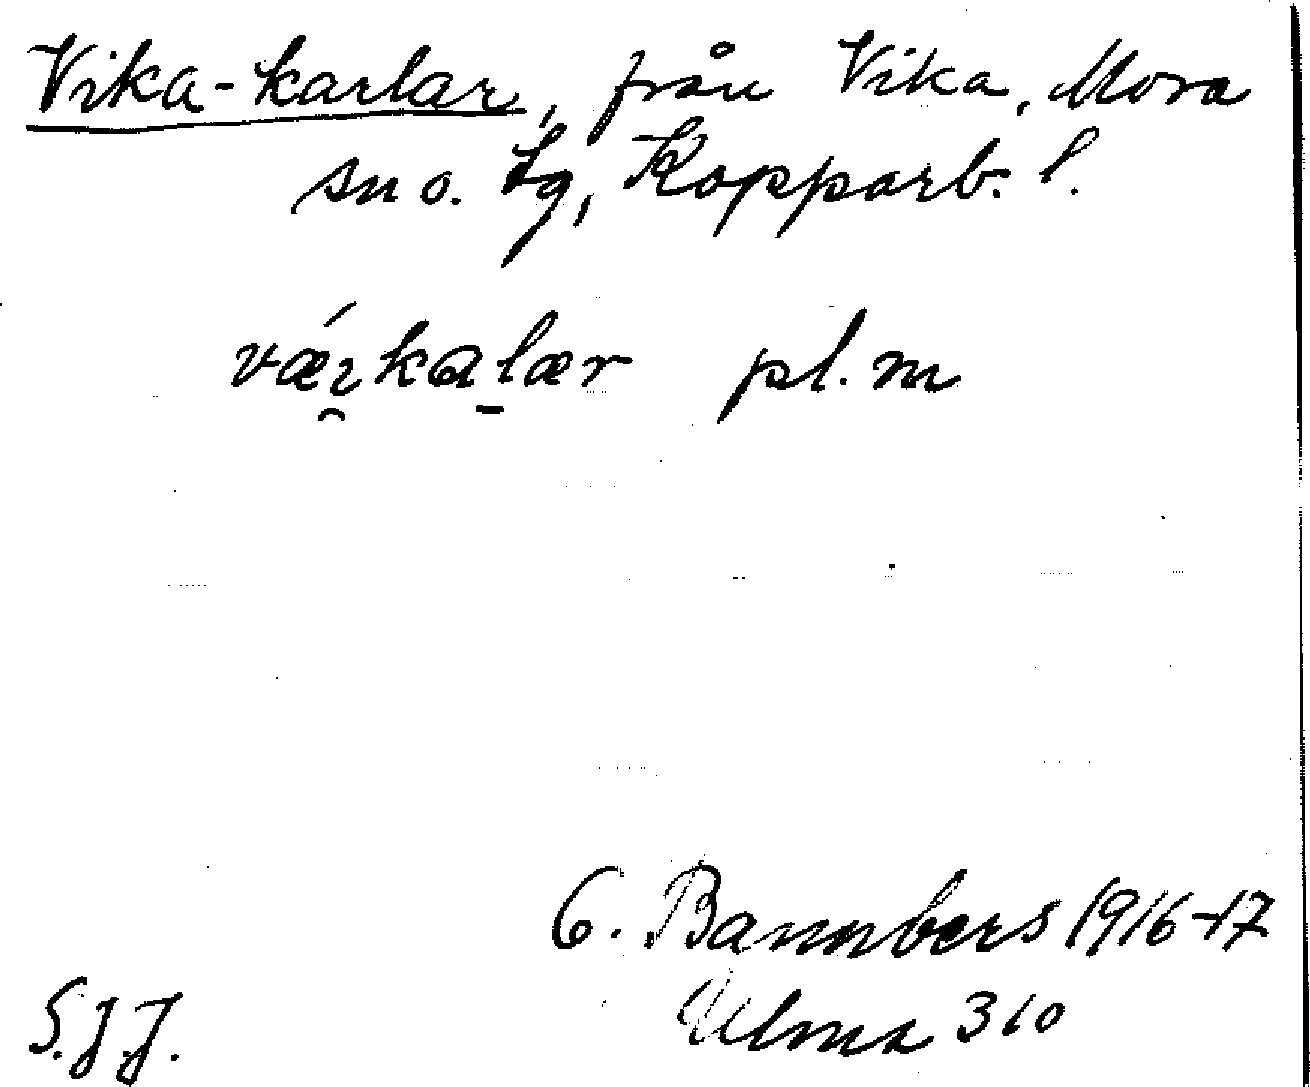 Vika-karlar, från Vika, Mora
sn o. tg, Kopparb. l.
vǽɿ̯ka̱lær pl. m
O. Bannbers 1916-17
Ulma 310
S.J.J.